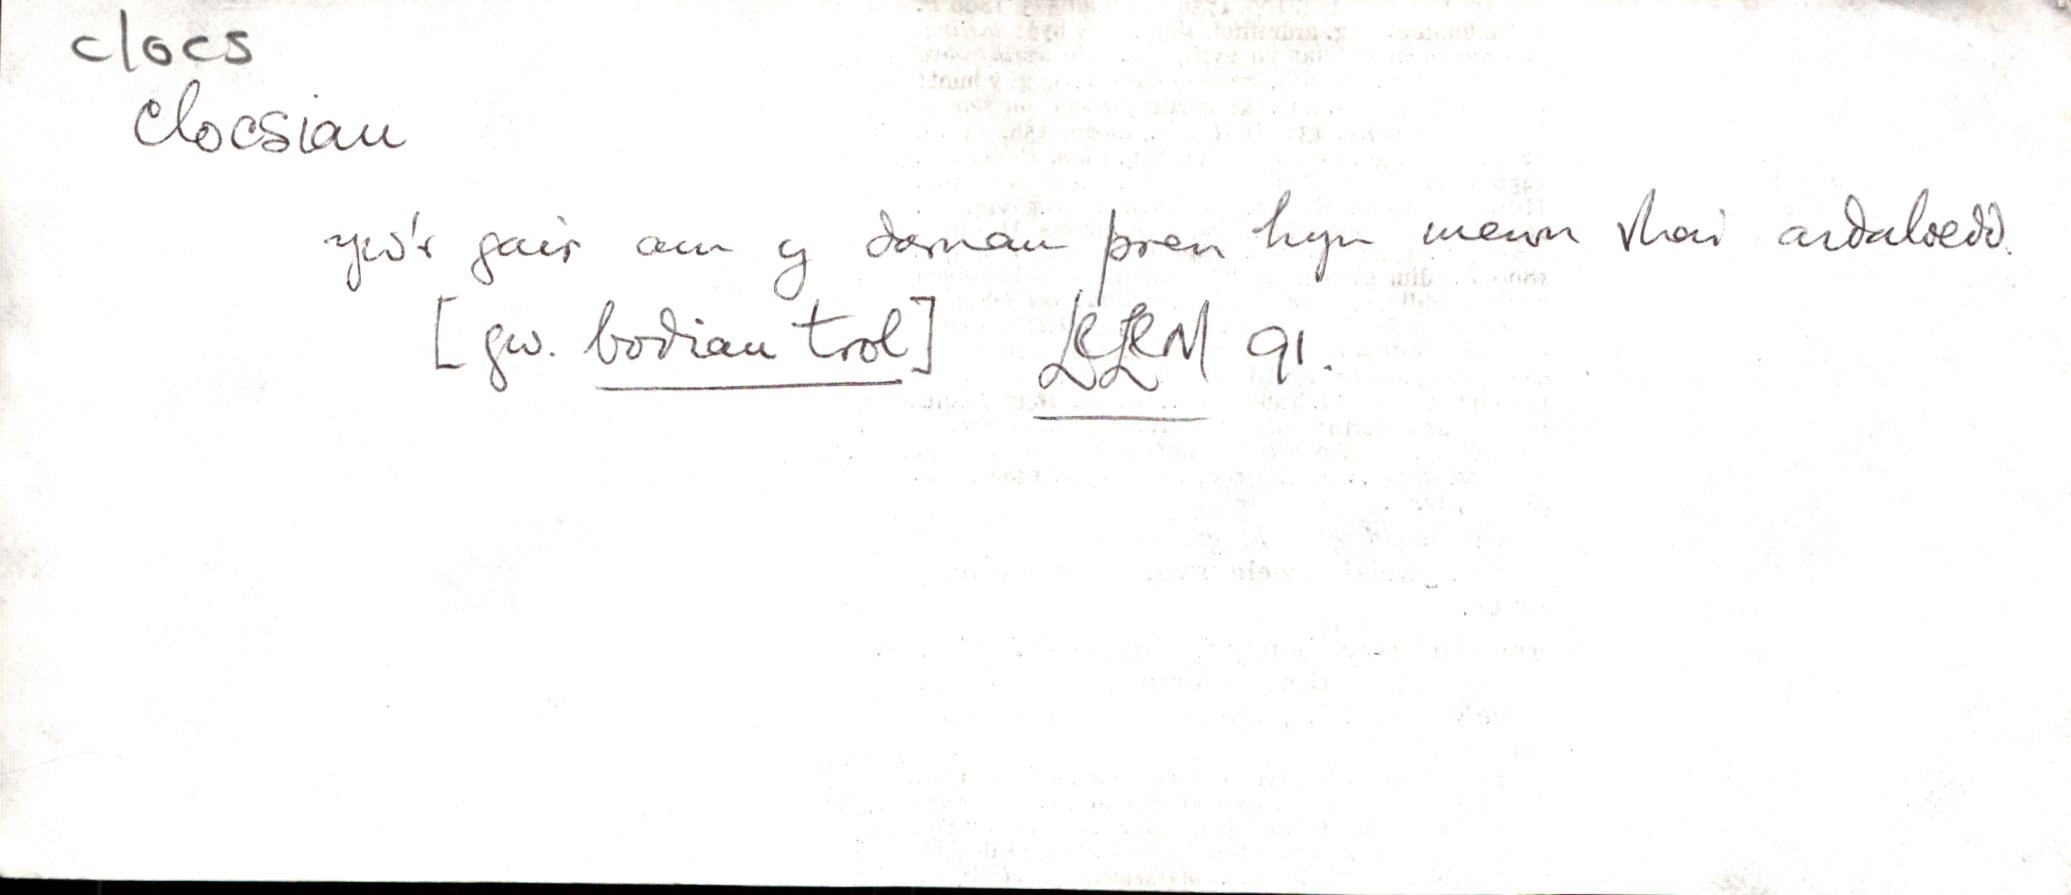 clocs
clocsian
yw'r gair am y darnau pren hyn mewn rhai ardaloedd.
[gw. bodiau trol] LLLLM 91.